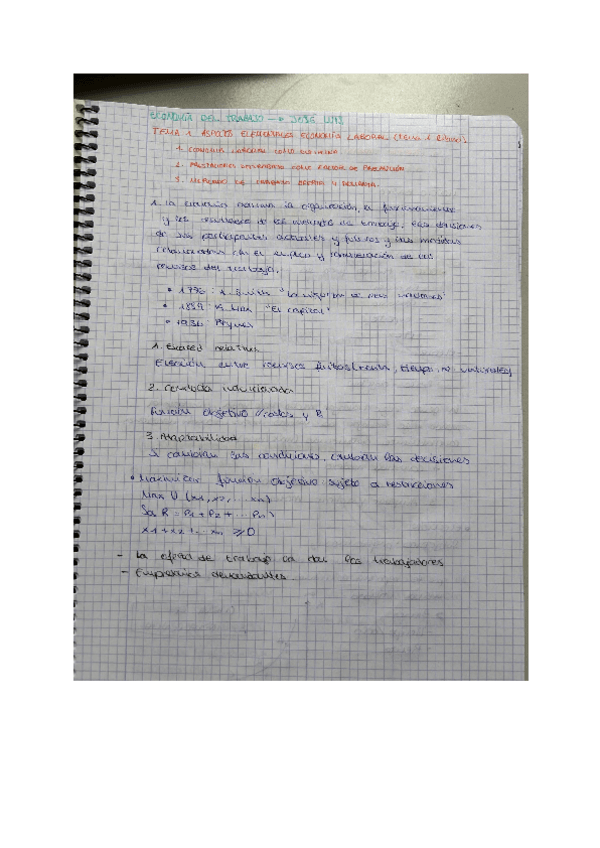 ECONOMÍA DEL TRABAJO → JOSE LUIS
TEMA 1. ASPECTOS ELEMENTALES ECONOMÍA LABORAL
1. ECONOMÍA LABORAL COMO DISCIPLINA
2. COMO FACTOR DE PRODUCCIÓN
3. MERCADO DE TRABAJO OFERTA Y DEMANDA
1. La examina la organización, el funcionamiento
y los resultados de los mercados de trabajo, las decisiones
de sus participantes actuales y futuros y las medidas
relacionadas con el empleo y remuneración de los
recursos del trabajo.
• 1776: A. Smith "La riqueza de las naciones"
• K. Marx "El capital"
• 1936 Keynes
1. Escasez relativa
Elección entre recursos (renta, tiempo, materiales)
2. Conducta
Función objetivo y R
3. Adaptabilidad
Si cambian las condiciones, cambian las decisiones
• Maximizar función objetivo sujeto a restricciones
Max U (x1, x2, ... xn)
Sa R = P1 + P2 + ... Pn
x1 + x2 + ... xn ≥ 0
- La oferta de trabajo la dan los trabajadores
- Empresarios demandantes